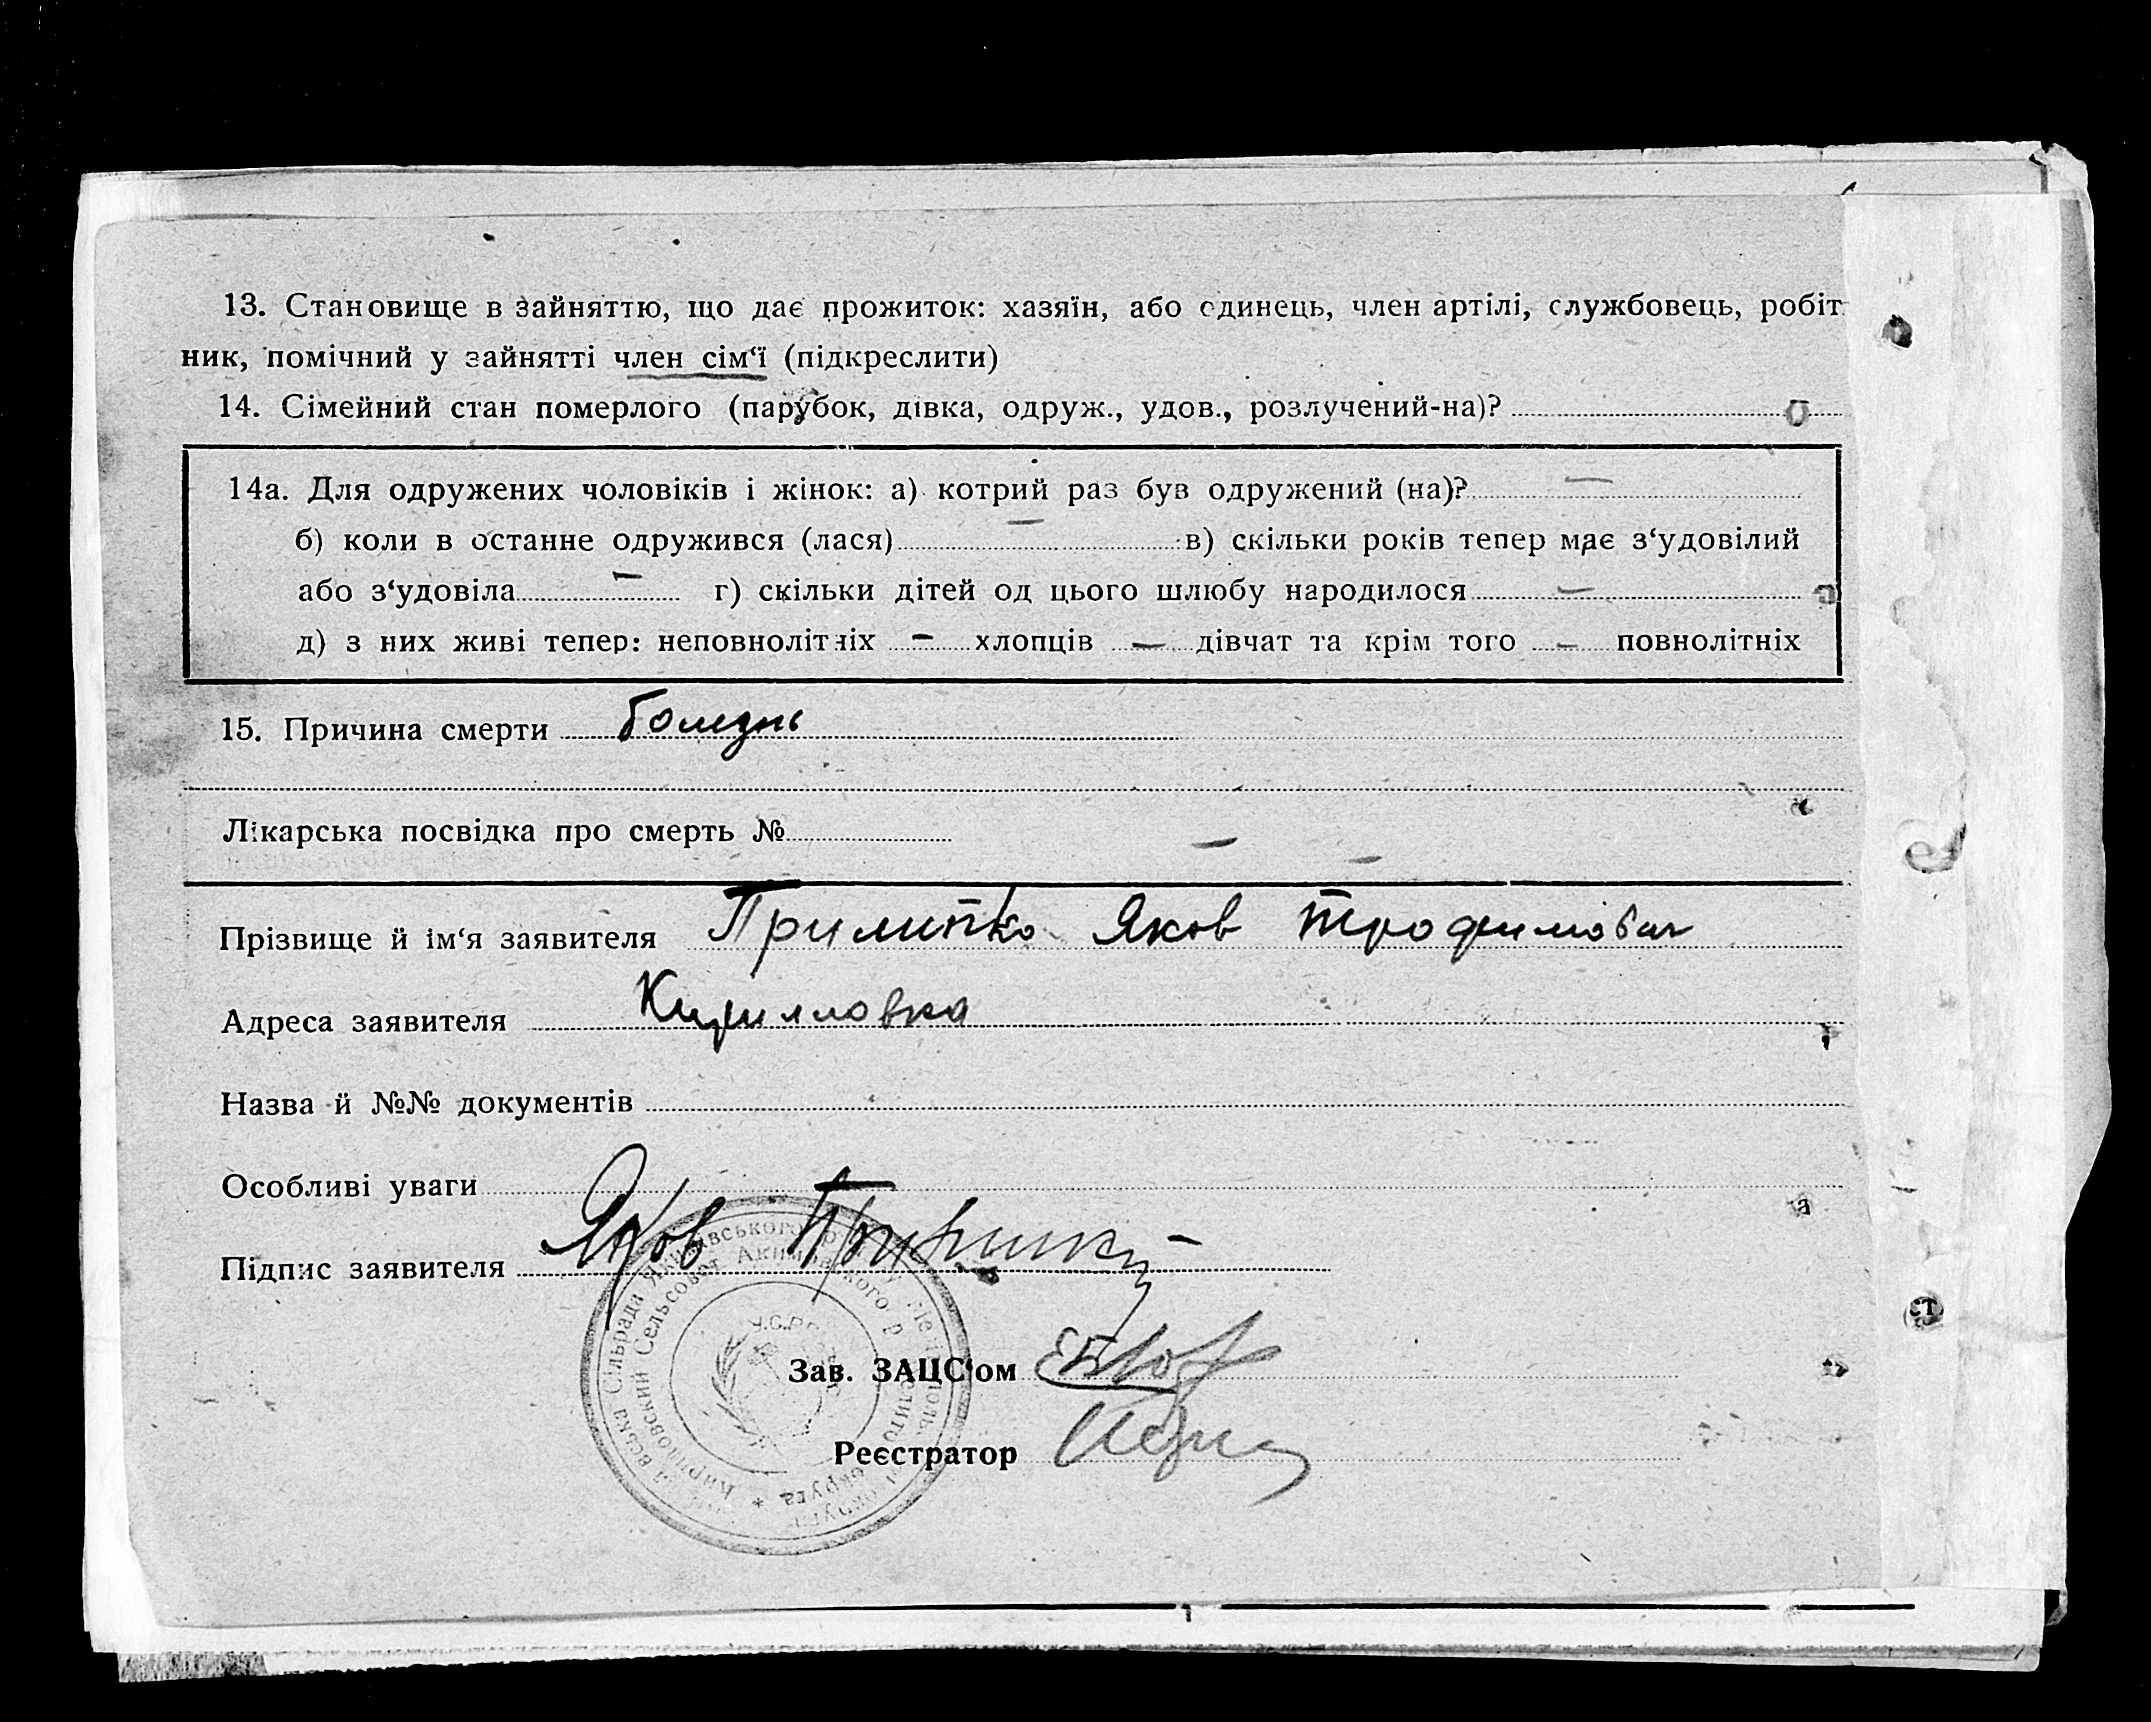 13. Становище в зайняттю, що дає прожиток: хазяїн, або одинець, член артілі, службовець, робіт
ник, помічний у зайнятті член сім‘ї (підкреслити)
14. Сімейний стан померлого (парубок, дівка, одруж., удов., розлучений-на)?
14а. Для одружених чоловіків і жінок: а) котрий раз був одружений (на)? —
б) коли в останне одружився (лася) — в) скільки років тепер має з‘удовілий
або з‘удовіла — г) скільки дітей од цього шлюбу народилося —
д) з них живі тепер: неповнолітніх — хлопців — дівчат та крім того — повнолітніх
15. Причина смерти болезнь
Лікарська посвідка про смерть № —
Прізвище й ім‘я заявителя Прилипко Яков Трофимович
Адреса заявителя Кирилловка
Назва й №№ документів
Особливі уваги
Підпис заявителя Яков
Зав. ЗАЦС‘ом
Реєстратор
Сільрада
Кириловский Сельсовет Акимовского р
округа *
У.С.Р.Р.